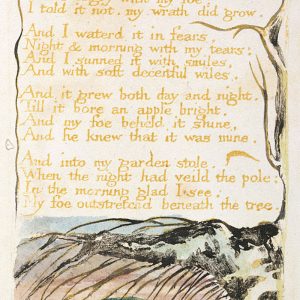 angry with my foe:
I told it not, my wrath did grow.
And I waterd it in fears,
Night & morning with my tears:
And I sunned it with smiles,
And with soft deceitful wiles.
And it grew both day and night,
Till it bore an apple bright.
And my foe beheld it shine,
And he knew that it was mine.
And into my garden stole,
When the night had veild the pole;
In the morning glad I see,
My foe outstretchd beneath the tree.